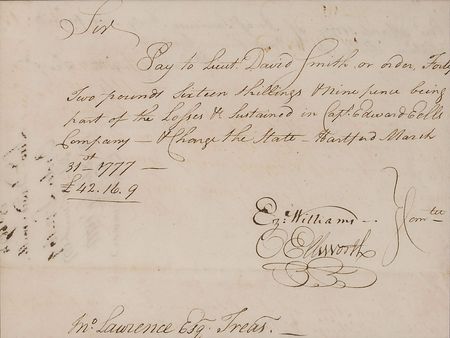 Sir
Pay to Lieut. David Smith or order, Forty
Two pounds Sixteen Shillings & nine pence being
part of the Losses &c sustained in Capt. Edward Eells
Company — & Charge the State — Hartford March
31st 1777 —
£42.16.9
Ez: Williams
O Ellsworth
Comtee
Jno. Lawrence Esqr. Treas.